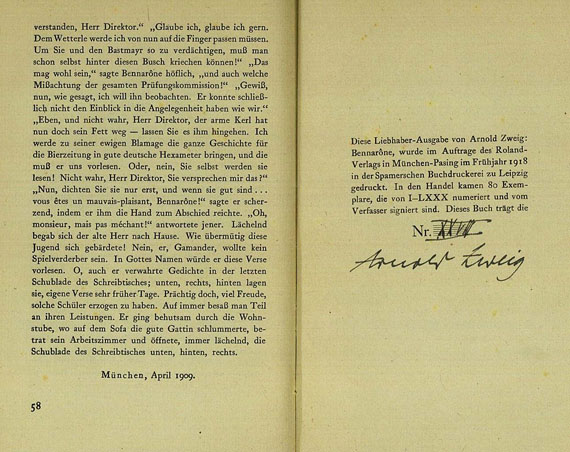 verstanden, Herr Direktor.“ „Glaube ich, glaube ich gern.
Dem Wetterle werde ich von nun auf die Finger passen müssen.
Um Sie und den Bastmayr so zu verdächtigen, muß man
schon selbst hinter diesen Busch kriechen können!“ „Das
mag wohl sein,“ sagte Bennarône höflich, „und auch welche
Mißachtung der gesamten Prüfungskommission!“ „Gewiß,
nun, wie gesagt, ich will ihn beobachten. Er konnte schließ-
lich nicht den Einblick in die Angelegenheit haben wie wir.“
„Eben, und nicht wahr, Herr Direktor, der arme Kerl hat
nun doch sein Fett weg — lassen Sie es ihm hingehen. Ich
werde zu seiner ewigen Blamage die ganze Geschichte für
die Bierzeitung in gute deutsche Hexameter bringen, und die
muß er uns vorlesen. Oder, nein, Sie selbst werden sie
lesen! Nicht wahr, Herr Direktor, Sie versprechen mir das?“
„Nun, dichten Sie sie nur erst, und wenn sie gut sind . . .
vous êtes un mauvais-plaisant, Bennarône!“ sagte er scher-
zend, indem er ihm die Hand zum Abschied reichte. „Oh,
monsieur, mais pas méchant!“ antwortete jener. Lächelnd
begab sich der alte Herr nach Hause. Wie übermütig diese
Jugend sich gebärdete! Nein, er, Gamander, wollte kein
Spielverderber sein. In Gottes Namen würde er diese Verse
vorlesen. O, auch er verwahrte Gedichte in der letzten
Schublade des Schreibtisches; unten, rechts, hinten lagen
sie, eigene Verse sehr früher Tage. Prächtig doch, viel Freude,
solche Schüler erzogen zu haben. Auf immer besaß man Teil
an ihren Leistungen. Er ging behutsam durch die Wohn-
stube, wo auf dem Sofa die gute Gattin schlummerte, be-
trat sein Arbeitszimmer und öffnete, immer lächelnd, die
Schublade des Schreibtisches unten, hinten, rechts.
München, April 1909.
58
Diese Liebhaber-Ausgabe von Arnold Zweig:
Bennarône, wurde im Auftrage des Roland-
Verlags in München-Pasing im Frühjahr 1918
in der Spamerschen Buchdruckerei zu Leipzig
gedruckt. In den Handel kamen 80 Exem-
plare, die von I–LXXX numeriert und vom
Verfasser signiert sind. Dieses Buch trägt die
Nr.
Arnold Zweig